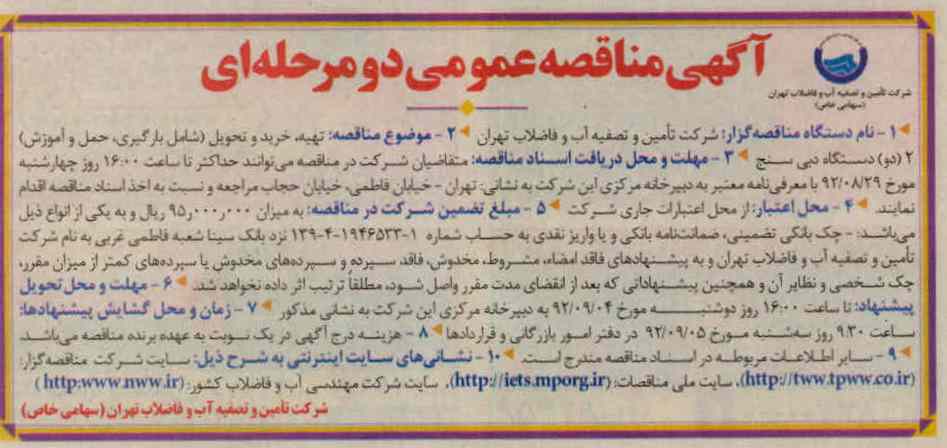 آگهی مناقصه عمومی دو مرحله‌ای
شرکت تأمین و تصفیه آب و فاضلاب تهران
(سهامی خاص)
۱- نام دستگاه مناقصه‌گزار: شرکت تأمین و تصفیه آب و فاضلاب تهران ۲- موضوع مناقصه: تهیه، خرید و تحویل (شامل بارگیری، حمل و آموزش)
۲ (دو) دستگاه دبی سنج ۳- مهلت و محل دریافت اسناد مناقصه: متقاضیان شرکت در مناقصه می‌توانند حداکثر تا ساعت ۱۶:۰۰ روز چهارشنبه
مورخ ۹۲/۰۸/۲۹ با معرفی‌نامه معتبر به دبیرخانه مرکزی این شرکت به نشانی: تهران - خیابان فاطمی، خیابان حجاب مراجعه و نسبت به اخذ اسناد مناقصه اقدام
نمایند. ۴- محل اعتبار: از محل اعتبارات جاری شرکت ۵- مبلغ تضمین شرکت در مناقصه: به میزان ۹۵ر۰۰۰ر۰۰۰ ریال و به یکی از انواع ذیل
می‌باشد: - چک بانکی تضمینی، ضمانت‌نامه بانکی و یا واریز نقدی به حساب شماره ۱-۱۹۴۶۵۳۳-۴-۱۳۹ نزد بانک سینا شعبه فاطمی غربی به نام شرکت
تأمین و تصفیه آب و فاضلاب تهران و به پیشنهادهای فاقد امضاء، مشروط، مخدوش، فاقد سپرده و سپرده‌های مخدوش یا سپرده‌های کمتر از میزان مقرر،
چک شخصی و نظایر آن و همچنین پیشنهاداتی که بعد از انقضای مدت مقرر واصل شود، مطلقاً ترتیب اثر داده نخواهد شد. ۶- مهلت و محل تحویل
پیشنهاد: تا ساعت ۱۶:۰۰ روز دوشنبه مورخ ۹۲/۰۹/۰۴ به دبیرخانه مرکزی این شرکت به نشانی مذکور ۷- زمان و محل گشایش پیشنهادها:
ساعت ۹:۳۰ روز سه‌شنبه مورخ ۹۲/۰۹/۰۵ در دفتر امور بازرگانی و قراردادها ۸- هزینه درج آگهی در یک نوبت به عهده برنده مناقصه می‌باشد.
۹- سایر اطلاعات مربوطه در اسناد مناقصه مندرج است. ۱۰- نشانی‌های سایت اینترنتی به شرح ذیل: سایت شرکت مناقصه‌گزار:
(http://tww.tpww.co.ir)، سایت ملی مناقصات: (http://iets.mporg.ir)، سایت شرکت مهندسی آب و فاضلاب کشور: (http:www.nww.ir)
شرکت تأمین و تصفیه آب و فاضلاب تهران (سهامی خاص)